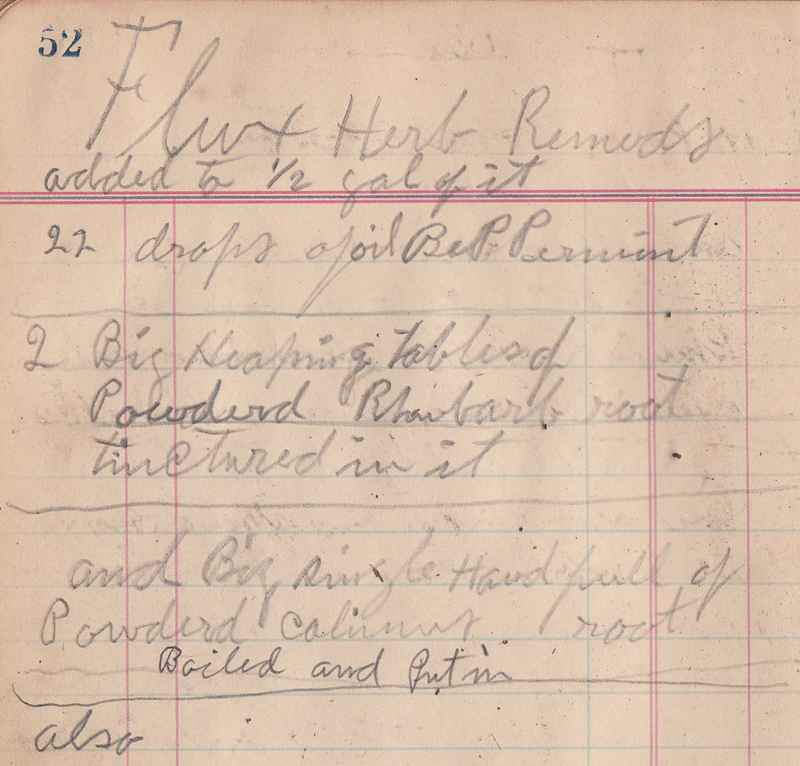 52
Flux Herb Remedy
added to 1/2 gal of it
22 drops of oil PePPermint
2 Big Heaping Tables of
Powderd Rhubarb root
tinctured in it
and Big single Handfull of
Powderd Calimus root
Boiled and Put in
also